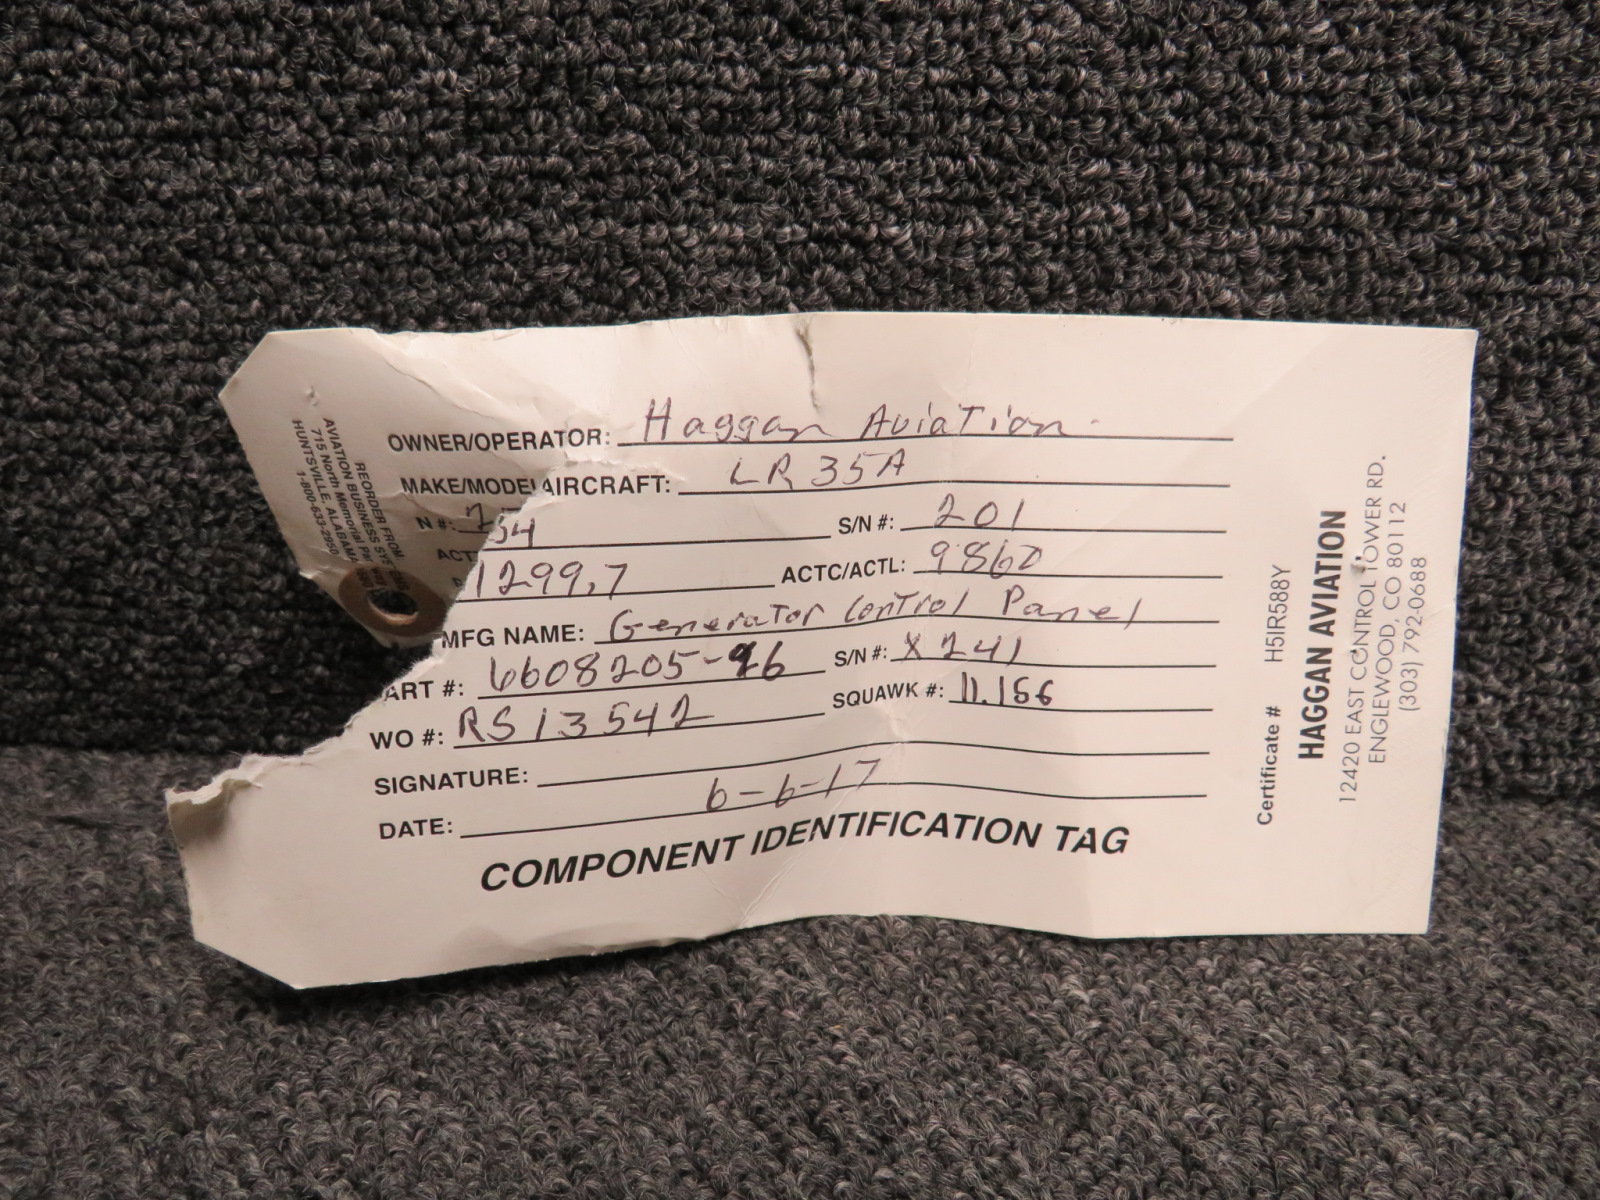 OWNER/OPERATOR: Haggan Aviation
MAKE/MODEL AIRCRAFT: LR 35A
N #: 34 S/N #: 201
ACT 1299.7 ACTC/ACTL: 9860
MFG NAME: Generator Control Panel
ART #: 6608205-96 S/N #: X241
WO #: RS13542 SQUAWK #: 11.156
SIGNATURE:
DATE: 6-6-17
COMPONENT IDENTIFICATION TAG
Certificate # H5IR588Y
HAGGAN AVIATION
12420 EAST CONTROL TOWER RD.
ENGLEWOOD, CO 80112
(303) 792-0688
REORDER FROM:
AVIATION BUSINESS SYS
715 North Memorial
HUNTSVILLE, ALABAMA
1-800-633-2950